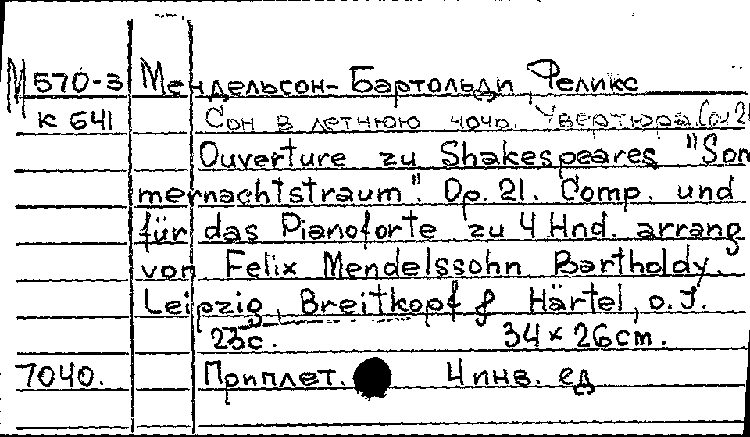 М 570-3 Мендельсон-Бартольди, Феликс
к 641 Сон в летнюю ночь. Увертюра. (оп. 21
Ouverture zu Shakespeares "Som
mernachtstraum". Op. 21. Comp. und
für das Pianoforte zu 4 Hnd. arrang
von Felix Mendelssohn Bartholdy.
Leipzig, Breitkopf & Härtel, o. J.
23с. 34 x 26 cm.
7040. Приплет. 4 инв. ед